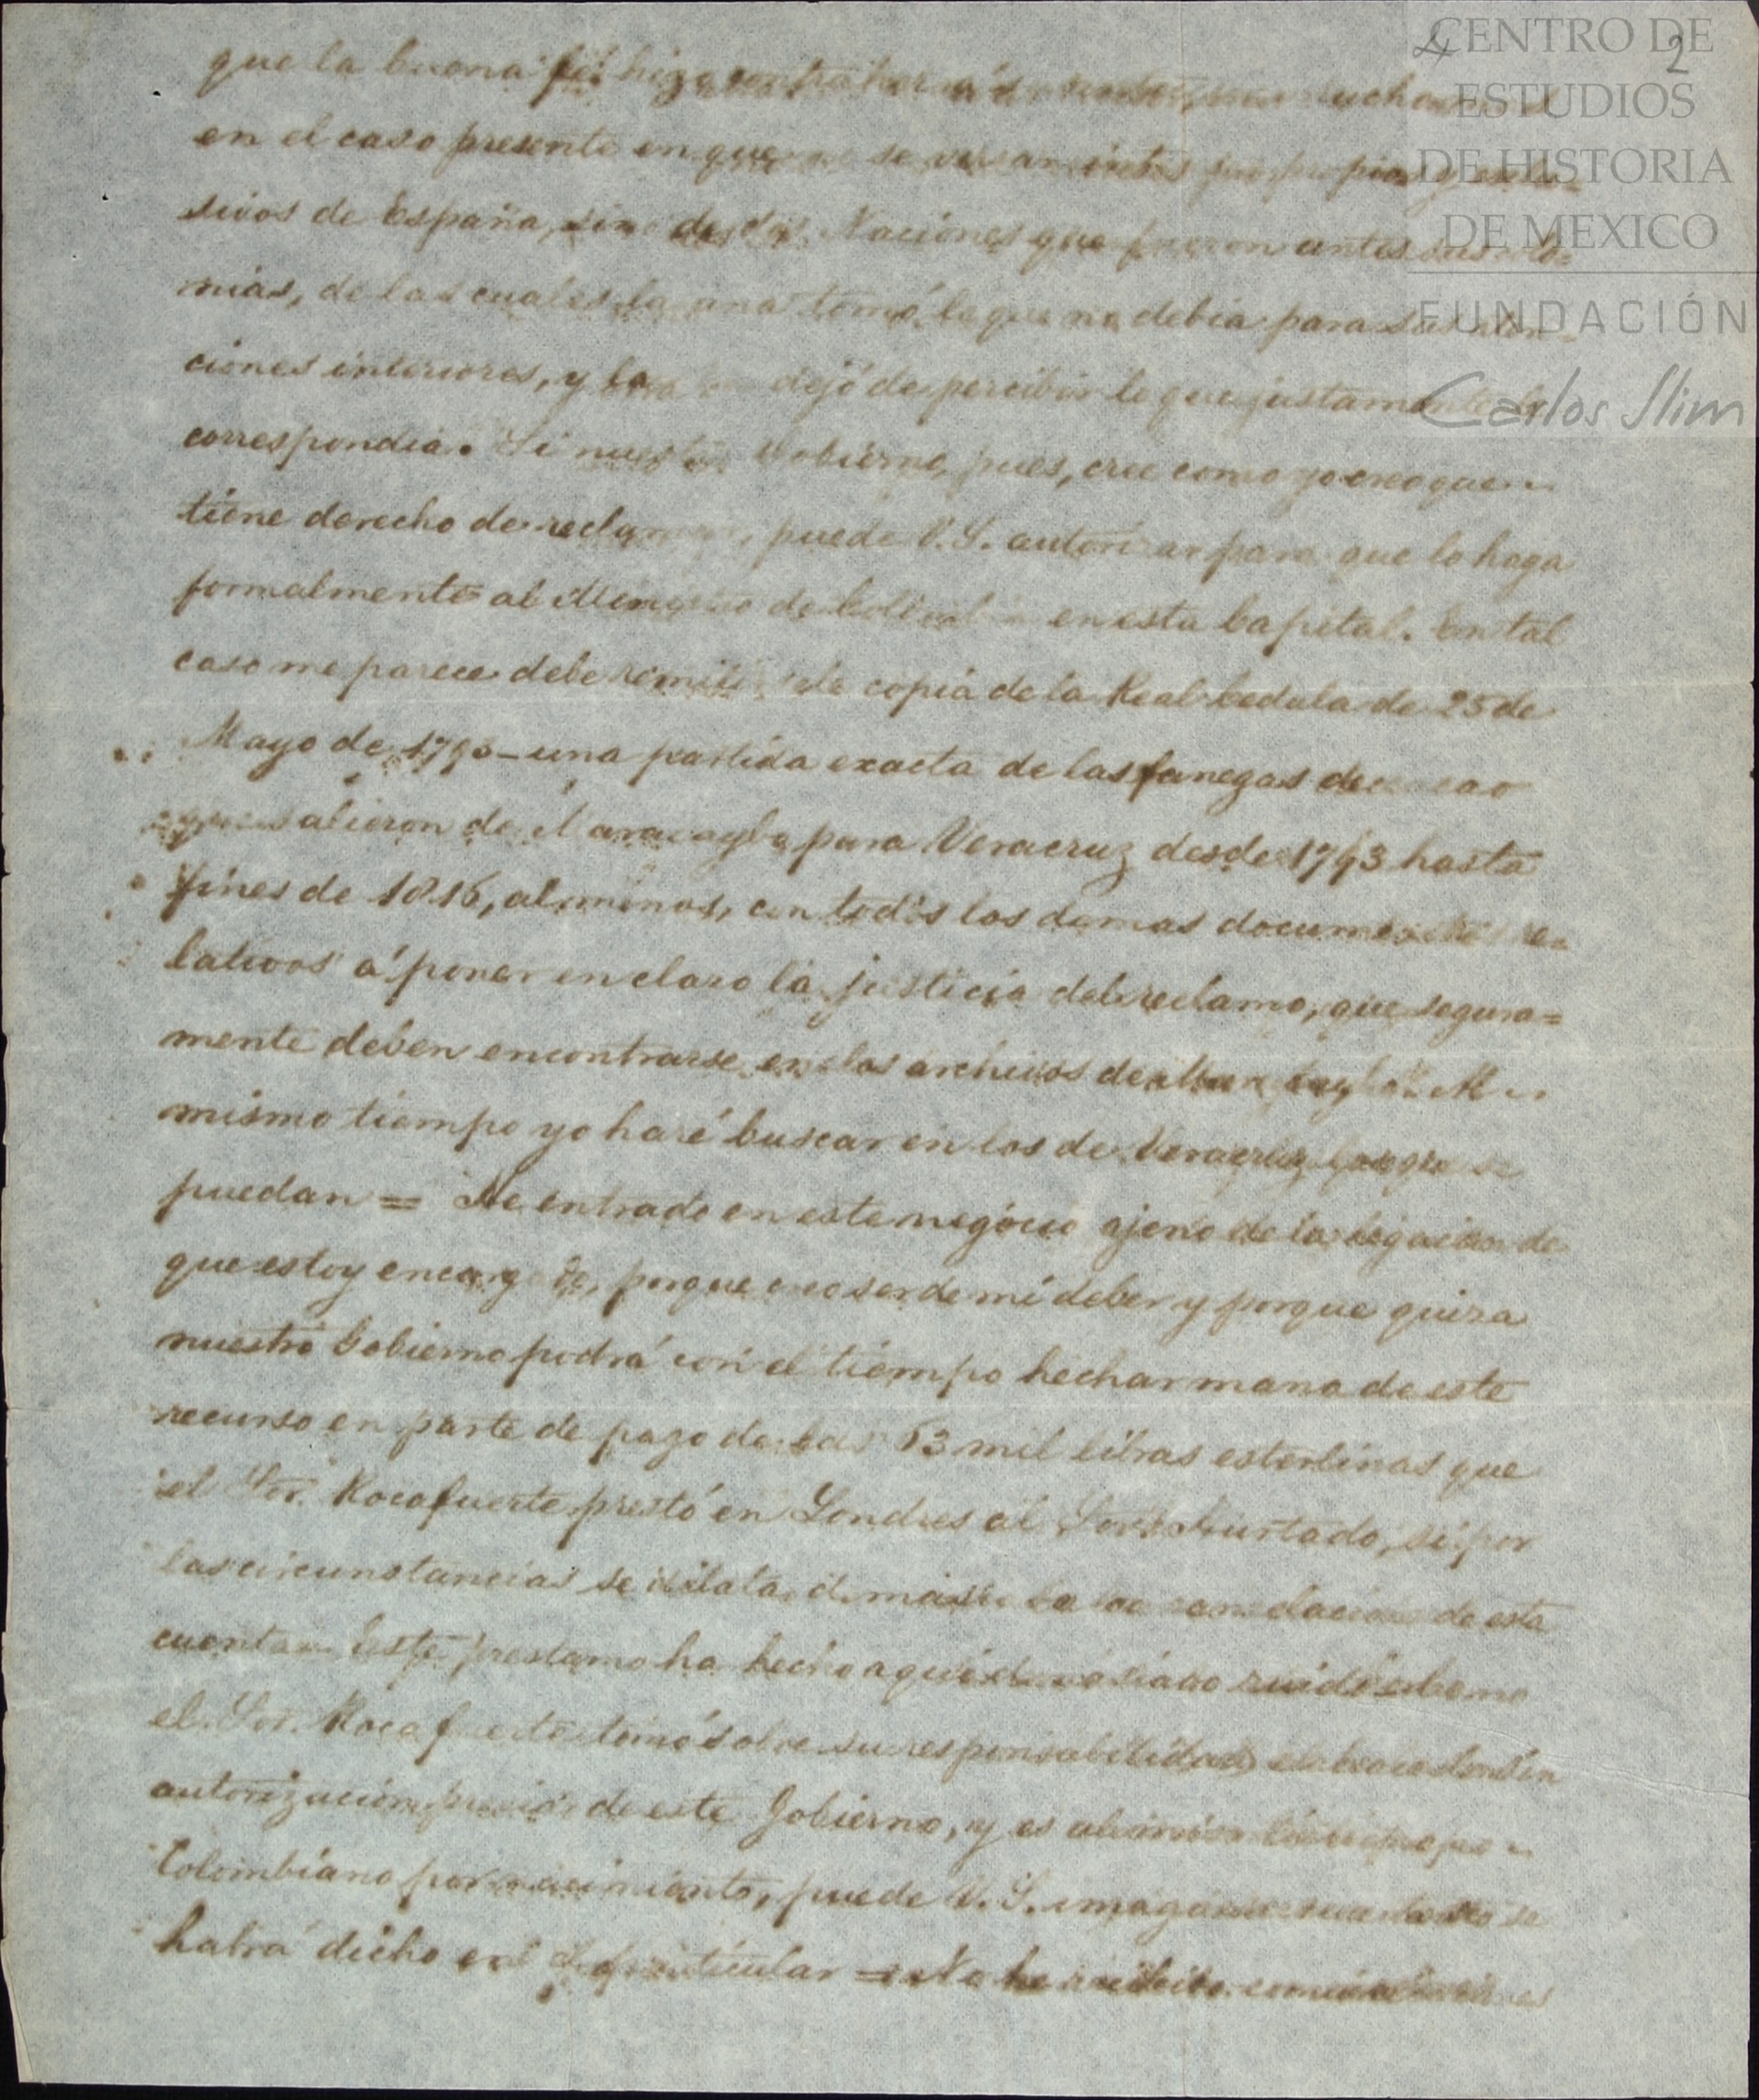 CENTRO DE
ESTUDIOS
DE HISTORIA
DE MEXICO
FUNDACIÓN
Carlos Slim
2
que la buena fé hizo contraher
en el caso presente en que no se versan
sivos de España, sino de dos Naciones que fueron antes sus colo=
nias, de las cuales la una tomó lo que no debia para sus aten=
ciones interiores, y la otra dejó de percibir lo que justamente le
correspondia. Si nuestro Gobierno, pues, cree como yo creo que
tiene derecho de reclamar, puede V.S. autorizar para que lo haga
formalmente al Ministro de Colombia en esta Capital. En tal
caso me parece debe remitirsele copia de la Real Cedula de 25 de
Mayo de 1793 - una partida exacta de las fanegas de cacao
que salieron de Maracaybo para Veracruz desde 1793 hasta
fines de 1816, al menos, con todos los demas documentos re=
lativos á poner en claro la justicia del reclamo, que segura=
mente deben encontrarse en los archivos de Maracaybo. Al
mismo tiempo yo haré buscar en los de Veracruz los que se
puedan = He entrado en este negócio ajeno de la Legacion de
que estoy encargado, porque creo ser de mi deber y porque quiza
nuestro Gobierno podrá con el tiempo hechar mano de este
recurso en parte de pago de las 63 mil libras esterlinas que
el Sor. Rocafuerte prestó en Londres al Sor. Hurtado, si por
las circunstancias se dilata demasiado la cancelacion de esta
cuenta. Este prestamo ha hecho aqui demasiado ruido. Como
el Sor. Rocafuerte tomó sobre su responsabilidad el hacerlo sin
autorizacion previa de este Gobierno, y es al mismo tiempo
Colombiano por nacimiento, puede V.S. imaginarse cuanto se
habrá dicho en el particular = No he recibido comunicaciones